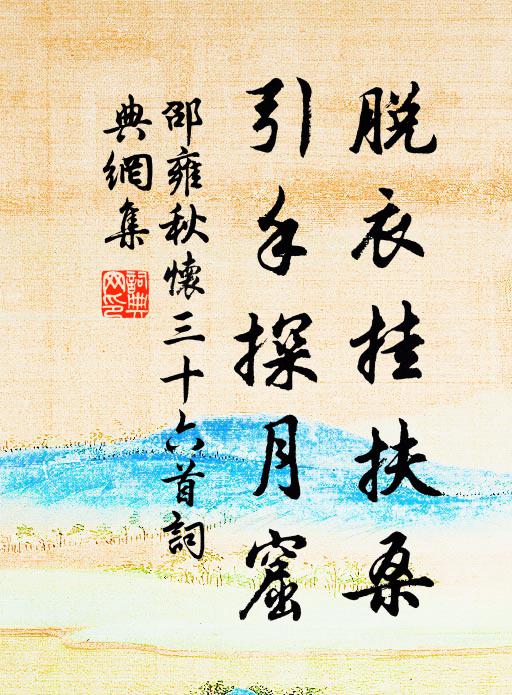 脫衣挂扶桑
引手探月窟
邵雍秋懷三十六首詞
典網集
詞典網印